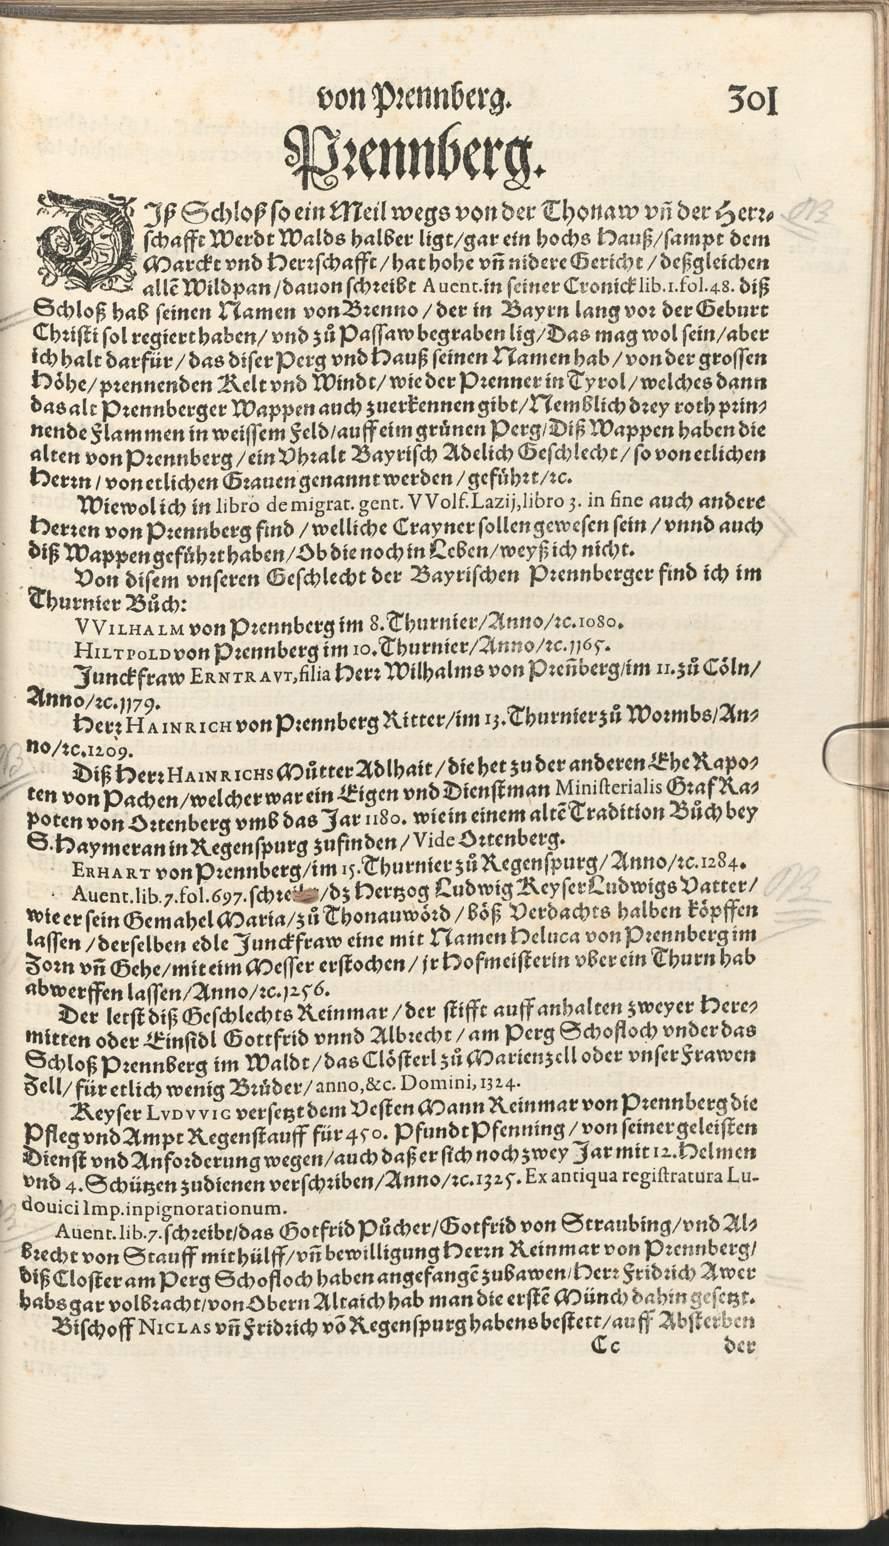 von Prennberg. 301
Prennberg.
DIß Schloß so ein Meil wegs von der Thonaw vñ der Herr-
schafft Werdt Walds halber ligt/gar ein hochs Hauß/sampt dem
Marckt vnd Herrschafft/hat hohe vñ nidere Gericht/deßgleichen
allē Wildpan/dauon schreibt Auent.in seiner Cronick lib.1.fol.48. diß
Schloß hab seinen Namen von Brenno/der in Bayrn lang vor der Geburt
Christi sol regiert haben/vnd zů Passaw begraben lig/Das mag wol sein/aber
ich halt darfür/das diser Perg vnd Hauß seinen Namen hab/von der grossen
Höhe/prennenden Kelt vnd Windt/wie der Prenner in Tyrol/welches dann
das alt Prennberger Wappen auch zuerkennen gibt/Nemblich drey roth prin-
nende Flammen in weissem Feld/auff eim grünen Perg/Diß Wappen haben die
alten von Prennberg/ein Vhralt Bayrisch Adelich Geschlecht/so von etlichen
Herrn/von etlichen Grauen genannt werden/geführt/ꝛc.
Wiewol ich in libro de migrat. gent. VVolf.Lazij,libro 3. in fine auch andere
Herren von Prennberg find/welliche Crayner sollen gewesen sein/vnnd auch
diß Wappen geführt haben/Ob die noch in Leben/weyß ich nicht.
Von disem vnseren Geschlecht der Bayrischen Prennberger find ich im
Thurnier Bůch:
VVILHALM von Prennberg im 8.Thurnier/Anno/ꝛc.1080.
HILTPOLD von Prennberg im 10.Thurnier/Anno/ꝛc.1165.
Junckfraw ERNTRAVT,filia Herr Wilhalms von Preñberg/im 11.zů Cöln/
Anno/ꝛc.1179.
Herr HAINRICH von Prennberg Ritter/im 13.Thurnier zů Wormbs/An-
no/ꝛc.1209.
Diß Herr HAINRICHS Můtter Adlhait/die het zu der anderen Ehe Rapo-
ten von Pachen/welcher war ein Eigen vnd Dienstman Ministerialis Graf Ra-
poten von Ortenberg vmb das Jar 1180. wie in einem altē Tradition Bůch bey
S.Haymeran in Regenspurg zufinden/Vide Ortenberg.
ERHART von Prennberg/im 15.Thurnier zů Regenspurg/Anno/ꝛc.1284.
Auent.lib.7.fol.697.schreibt/dz Hertzog Ludwig Keyser Ludwigs Vatter/
wie er sein Gemahel Maria/zů Thonauwörd/böß Verdachts halben köpffen
lassen/derselben edle Junckfraw eine mit Namen Heluca von Prennberg im
Zorn vñ Gehe/mit eim Messer erstochen/jr Hofmeisterin vber ein Thurn hab
abwerffen lassen/Anno/ꝛc.1256.
Der letst diß Geschlechts Reinmar/der stifft auff anhalten zweyer Here-
mitten oder Einsidl Gottfrid vnnd Albrecht/am Perg Schofloch vnder das
Schloß Prennberg im Waldt/das Clösterl zů Marienzell oder vnser Frawen
Zell/für etlich wenig Brüder/anno,&c. Domini,1324.
Keyser LVDVVIG versetzt dem Vesten Mann Reinmar von Prennberg die
Pfleg vnd Ampt Regenstauff für 450. Pfundt Pfenning/von seiner geleisten
Dienst vnd Anforderung wegen/auch daß er sich noch zwey Jar mit 12.Helmen
vnd 4.Schützen zudienen verschriben/Anno/ꝛc.1325. Ex antiqua registratura Lu-
douici Imp.inpignorationum.
Auent.lib.7.schreibt/das Gotfrid Pücher/Gotfrid von Straubing/vnd Al-
brecht von Stauff mit hülff/vñ bewilligung Herrn Reinmar von Prennberg/
diß Closter am Perg Schofloch haben angefangē zubawen/Herr Fridrich Awer
habs gar volbracht/von Obern Altaich hab man die erstē Münch dahin gesetzt.
Bischoff NICLAS vñ Fridrich võ Regenspurg habens bestett/auff Absterben
Cc der